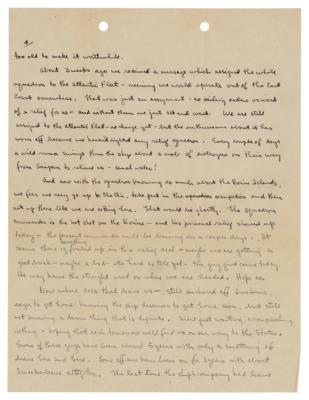 4
too old to make it worthwhile.
About 3 weeks ago we received a message which assigned the whole
squadron to the Atlantic Fleet – meaning we would operate out of the East
Coast somewhere. That was just an assignment – no sailing orders or word
of a relief for us – and without them we just sit and wait. We are still
assigned to the Atlantic Fleet – no change yet – but the enthusiasm about it has
worn off because we haven't sighted any relief squadron. Every couple of days
a wild rumor swings thru the ship about a mob of destroyers on their way
from Saipan to relieve us – usual water!
And now with the squadron knowing so much about the Bonin Islands,
we fear we may go up to the , take part in the operation occupation and then
sit up there like we are sitting here. That would be ghastly. The squadron
commander is the hot shot on the Bonins – and his personal relief showed up
today – the present commander will be leaving in a couple days. It
seems there is something fouled up in this relief deal – maybe we are getting a
good break – maybe a bad – its hard to tell yet. The guy just came today.
He may have the straight word on where we are headed. Hope so.
Now where does that leave us – still anchored off Iwo Jima,
eager to get home, knowing the ship deserves to get home soon, but still
not knowing a damn thing that is definite. We're just waiting, accomplishing
nothing – hoping that each tomorrow will find us on our way to the States.
Some of these guys have been aboard 3 years with only a smattering of
leave here and there. Some officers have been on for 3 years with about
3 weeks leave altogether. The last time the ship's company had leave